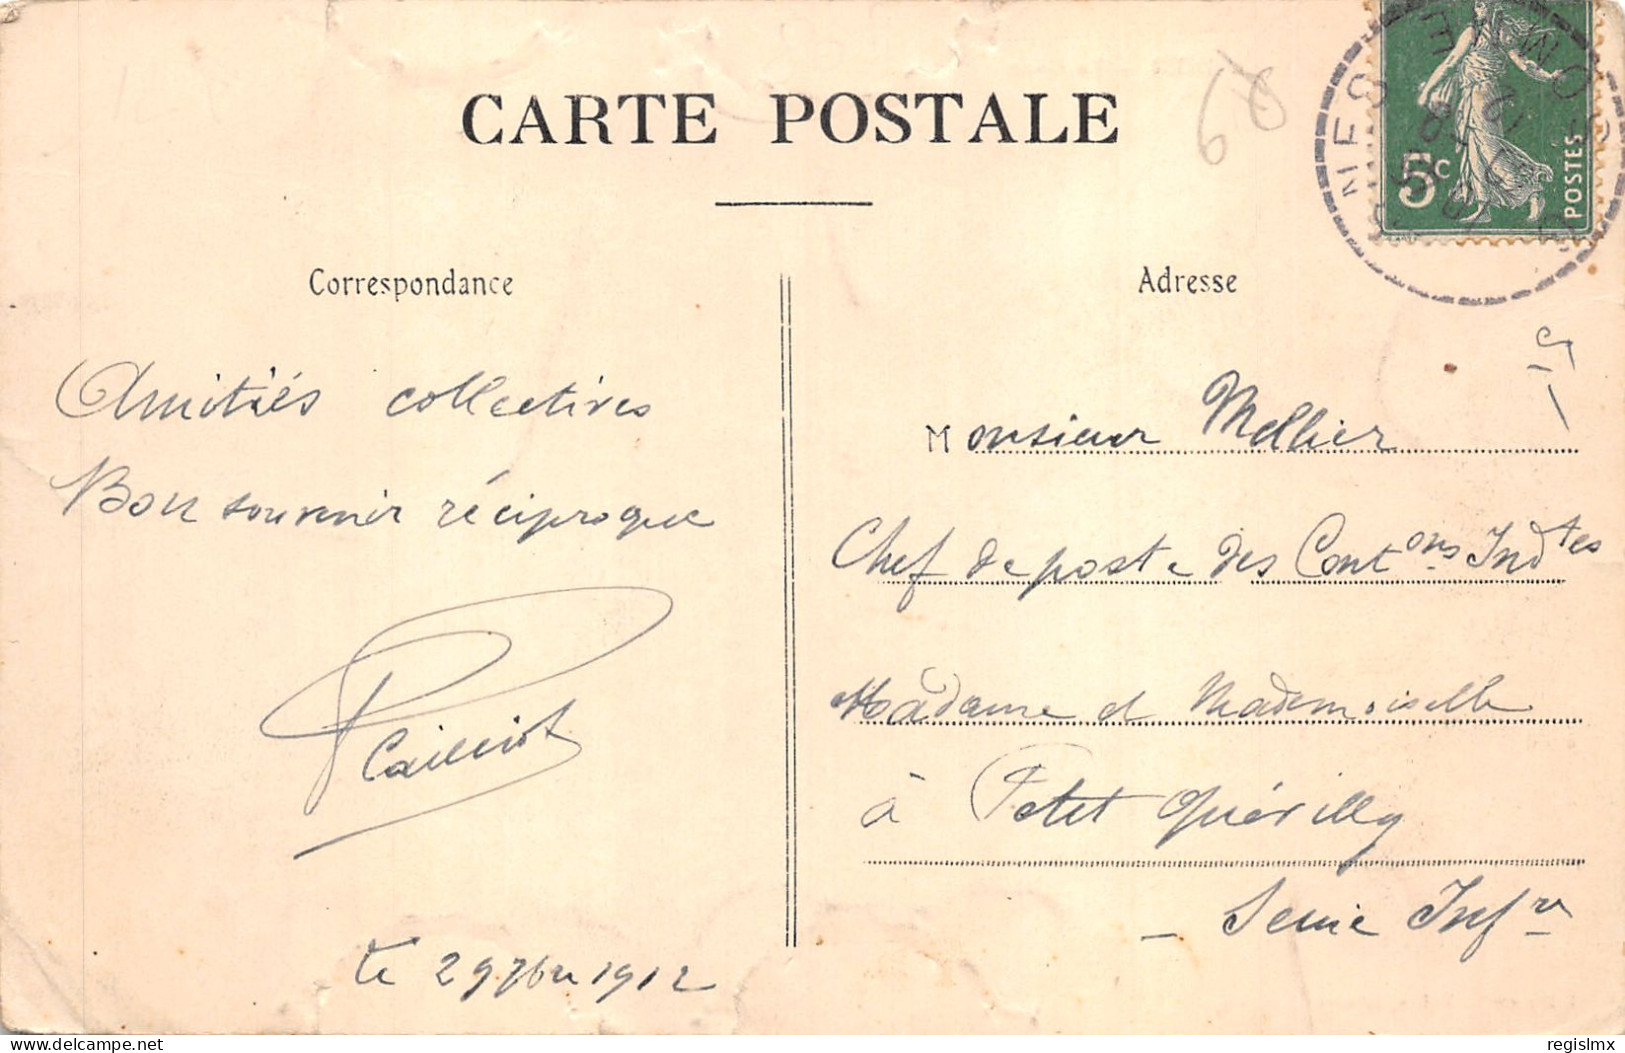 CARTE POSTALE
68
5c
POSTES
Correspondance
Adresse
Amitiés collectives
Bon souvenir réciproque
le 29 7bre 1912
Monsieur Mellier
Chef de poste des Contons Indtes
Madame et Mademoiselle
à Petit Quévilly
- Seine Infre
delcampe.net
regislmx